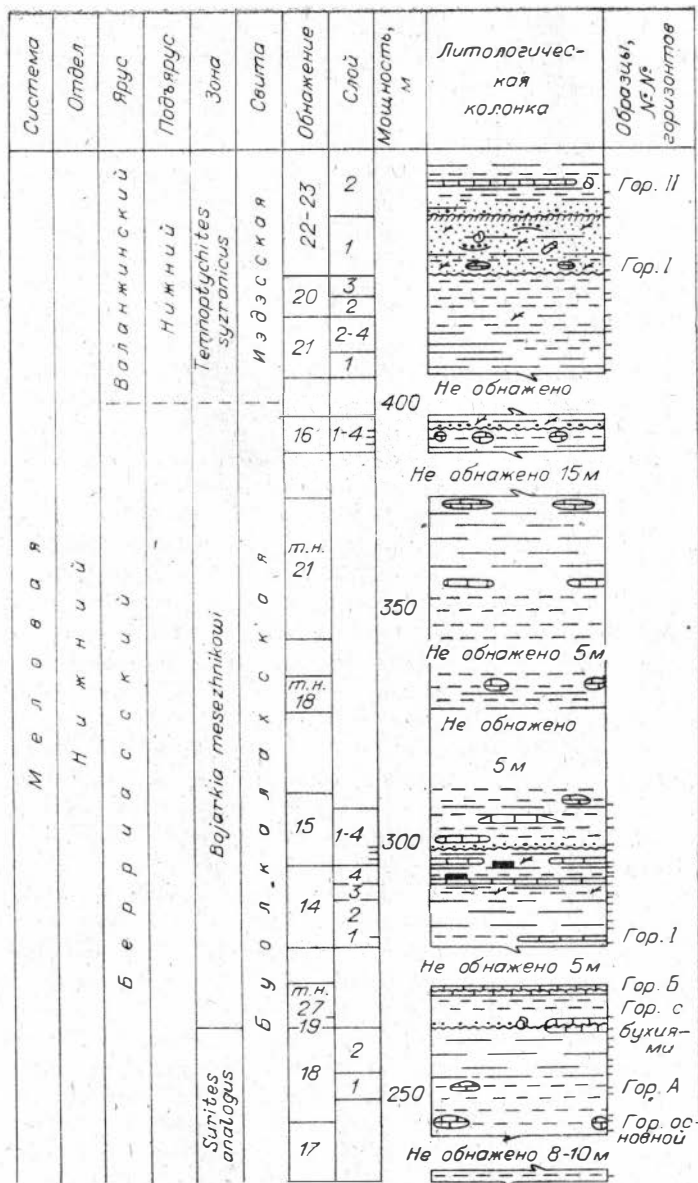 Система
Отдел
Ярус
Подъярус
Зона
Свита
Обнажение
Слой
Мощность,
м
Литологичес-
кая
колонка
Образцы,
№№
горизонтов
Меловая
Нижний
Валанжинский
Берриасский
Нижний
Temnoptychites
syzranicus
Bojarkia mesezhnikowi
Surites
analogus
Издэсская
Буолкалахская
22-23
2
1
20
3
2
21
2-4
1
16
1-4
т.н.
21
т.н.
18
15
1-4
14
4
3
2
1
т.н.
27
19
18
2
1
17
400
350
300
250
Не обнажено
Не обнажено 15 м
Не обнажено 5 м
Не обнажено
5 м
Не обнажено 5 м
Не обнажено 8-10 м
Гор. II
Гор. I
Гор. I
Гор. Б
Гор. с
бухия-
ми
Гор. А
Гор. ос-
новной